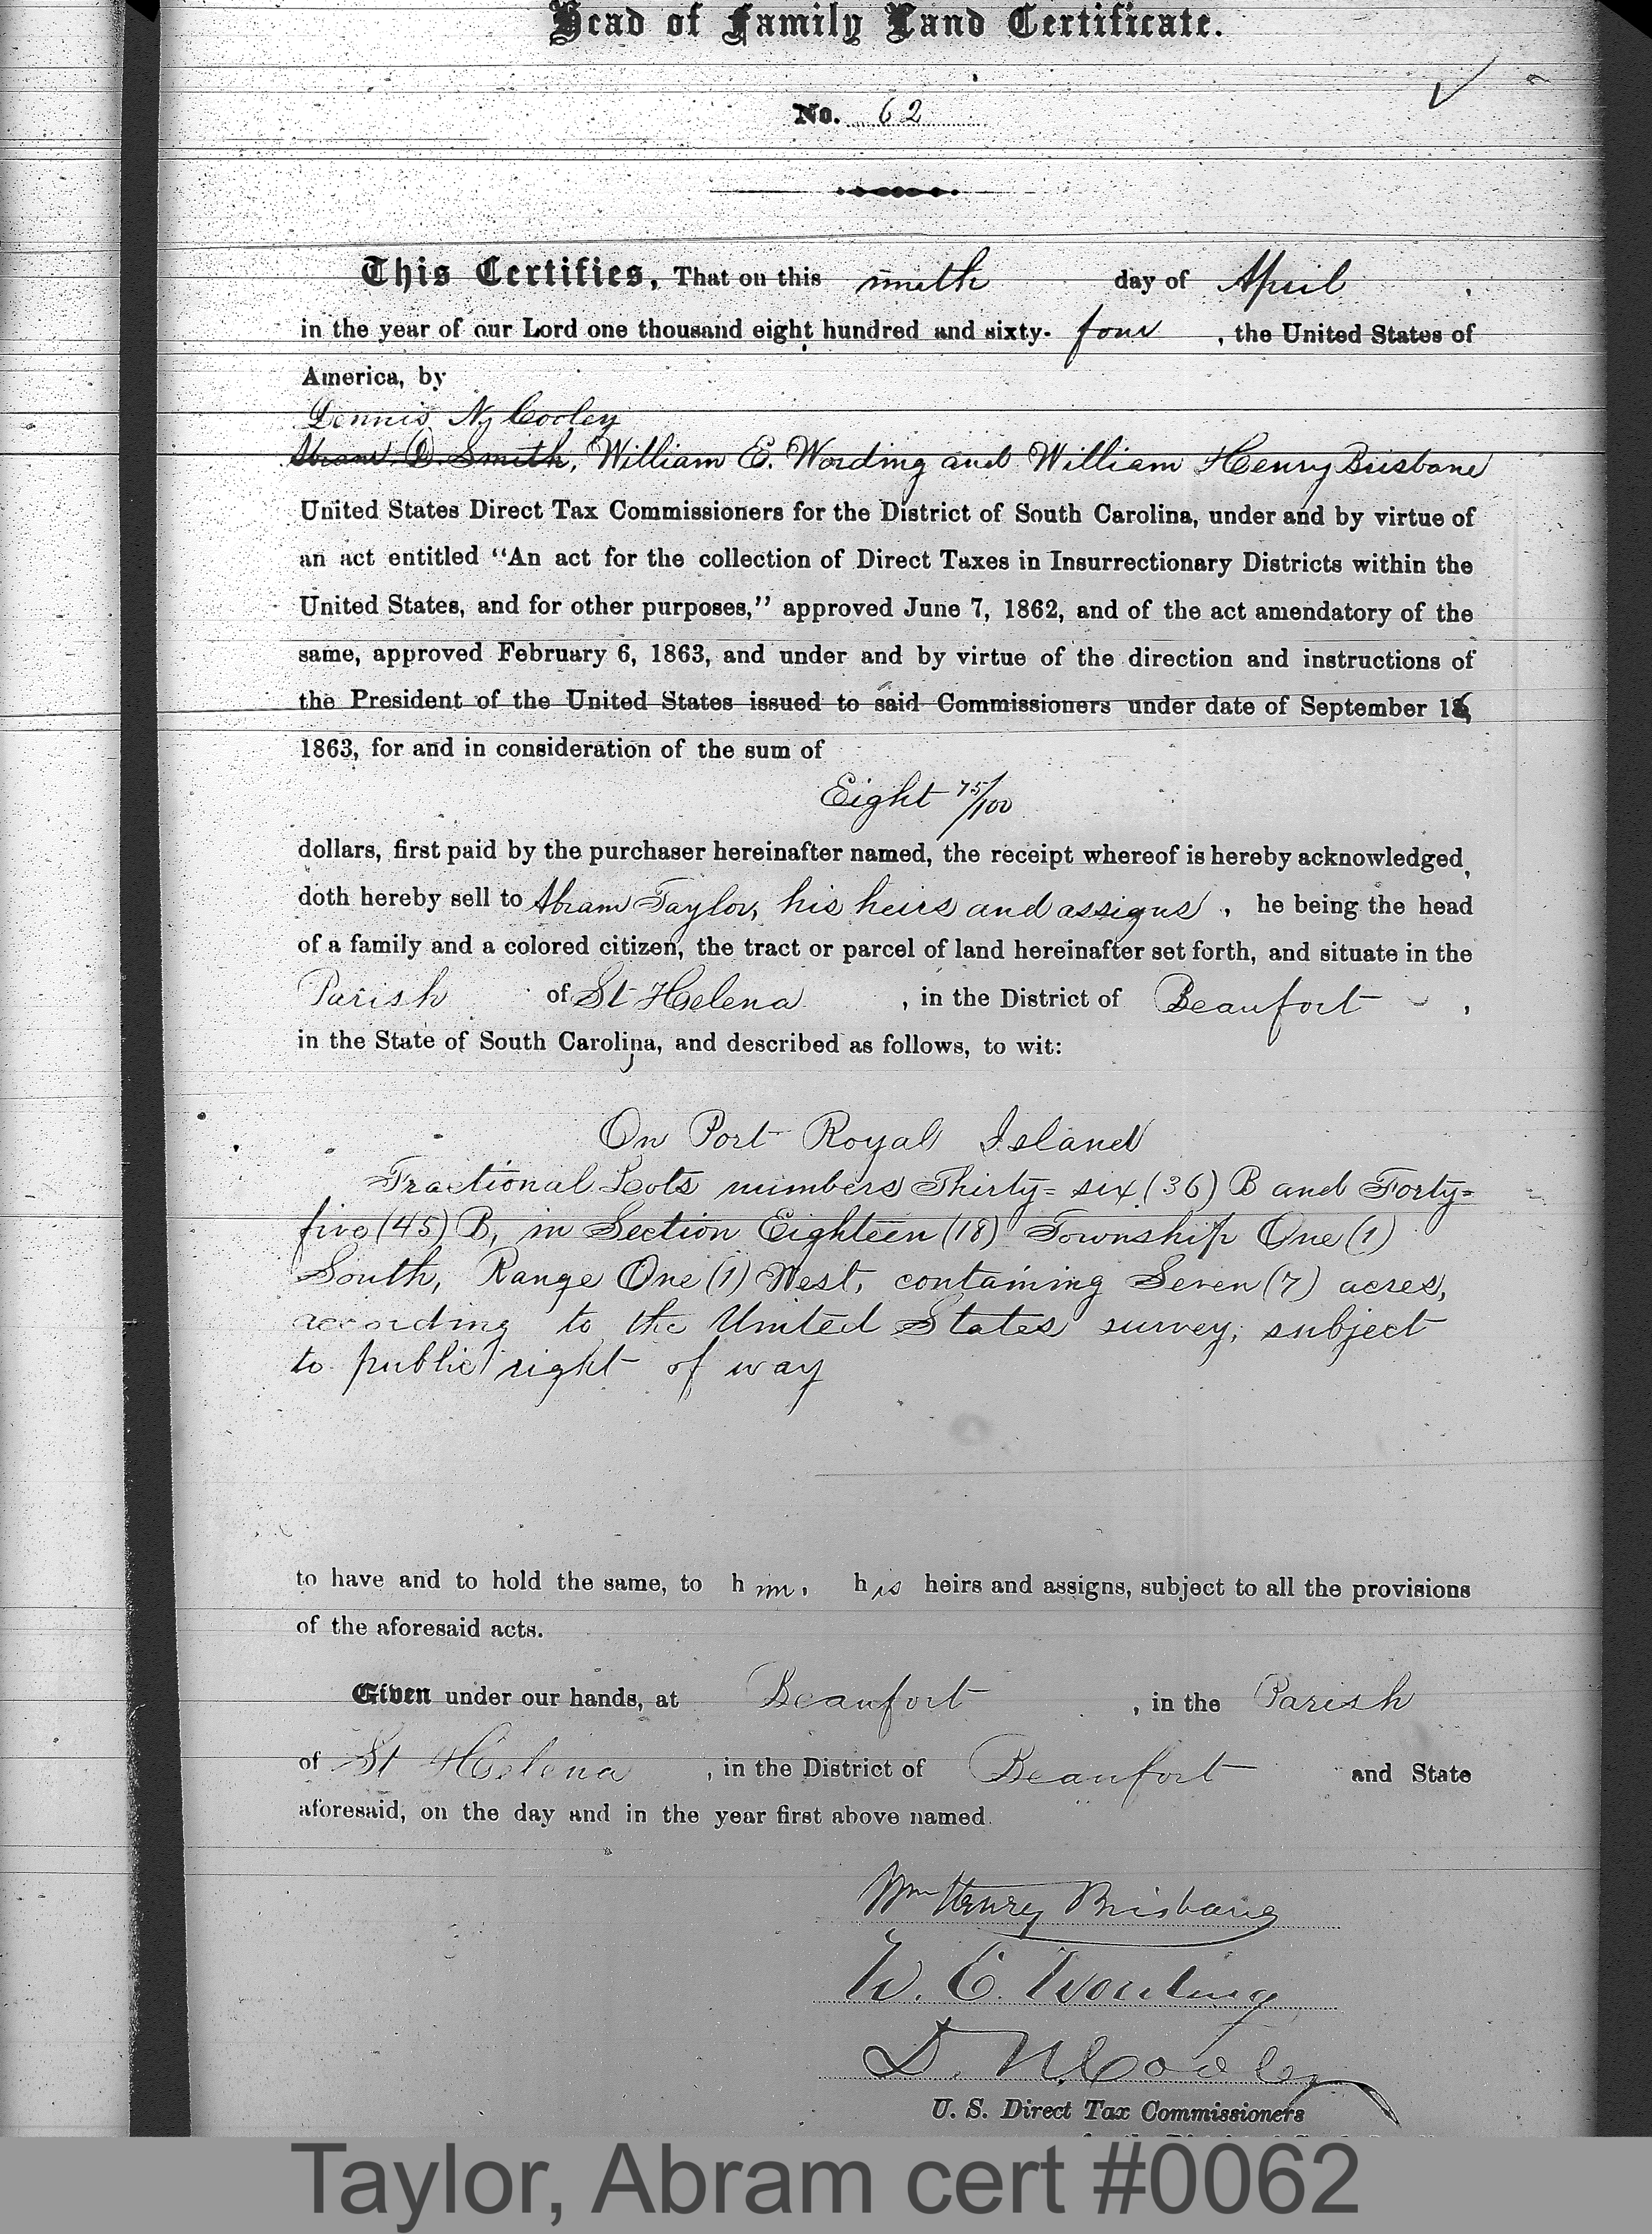 Head of Family Land Certificate.
No. 62
This Certifies, That on this ninth day of April ,
in the year of our Lord one thousand eight hundred and sixty- four , the United States of
America, by
Dennis N. Cooley
Abram D. Smith, William E. Wording and William Henry Brisbane
United States Direct Tax Commissioners for the District of South Carolina, under and by virtue of
an act entitled "An act for the collection of Direct Taxes in Insurrectionary Districts within the
United States, and for other purposes," approved June 7, 1862, and of the act amendatory of the
same, approved February 6, 1863, and under and by virtue of the direction and instructions of
the President of the United States issued to said Commissioners under date of September 16,
1863, for and in consideration of the sum of
Eight 75/100
dollars, first paid by the purchaser hereinafter named, the receipt whereof is hereby acknowledged,
doth hereby sell to Abram Taylor, his heirs and assigns , he being the head
of a family and a colored citizen, the tract or parcel of land hereinafter set forth, and situate in the
Parish of St Helena , in the District of Beaufort ,
in the State of South Carolina, and described as follows, to wit:
On Port Royal Island
Fractional Lots numbers Thirty=six (36) B and Forty=
five (45) B, in Section Eighteen (18) Township One (1)
South, Range One (1) West, containing Seven (7) acres,
according to the United States survey; subject
to public right of way
to have and to hold the same, to him, his heirs and assigns, subject to all the provisions
of the aforesaid acts.
Given under our hands, at Beaufort , in the Parish
of St Helena , in the District of Beaufort and State
aforesaid, on the day and in the year first above named.
Wm Henry Brisbane
W. E. Wording
D. N. Cooley
U. S. Direct Tax Commissioners
Taylor, Abram cert #0062